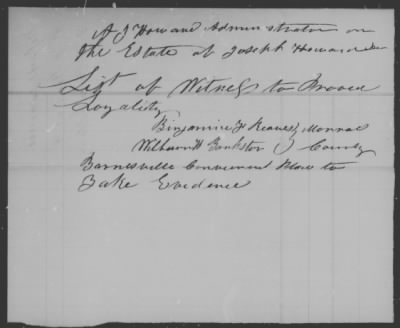 A J Howard Administrator on
The Estate of Joseph Howard Dec
List of Witness to Proove
Loyality
Binjamine H Reaves } Monroe
William H Bankston } County
Barnesville Convenient Place to
Take Evidence